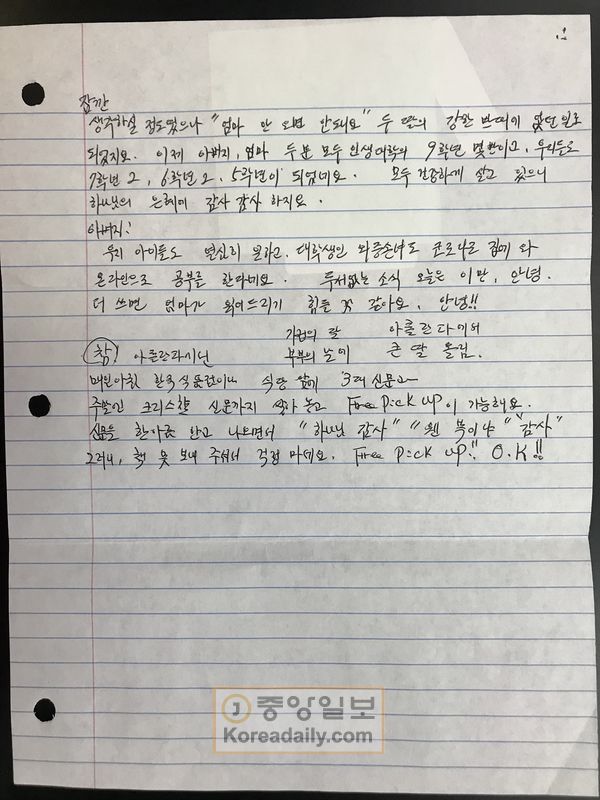 잠깐
생각하실 정도였으나 "엄마 안 되면 안돼요" 두 딸의 강한 반대에 없던 일로
되었지요. 이제 아버지, 엄마 두분 모두 인생대학의 9학년 몇반이고, 우리들도
7학년 2, 6학년 2, 5학년이 되었네요. 모두 건강하게 살고 있으니
하나님의 은혜에 감사 감사 하지요.
아버지!
우리 아이들도 열심히 일하고, 대학생인 외증손녀도 코로나로 집에 와
온라인으로 공부를 한다네요. 두서없는 소식 오늘은 이만, 안녕.
더 쓰면 엄마가 읽어드리기 힘들 것 같아요. 안녕!!
가정의 달 아틀란타에서
부부의 날에 큰 딸 올림.
참 아틀란타시닌
매일아침 한국식품점이나 식당 앞에 3대 신문과
주말인 크리스찬 신문까지 쌓아 놓고 Free Pick up이 가능해요.
신문들 한아름 안고 나오면서 "하나님 감사" "웬 복이냐" "감사"
그러니, 책 못 보내 주셔서 걱정 마세요. Free Pick up!! O.K!!
중앙일보
Koreadaily.com